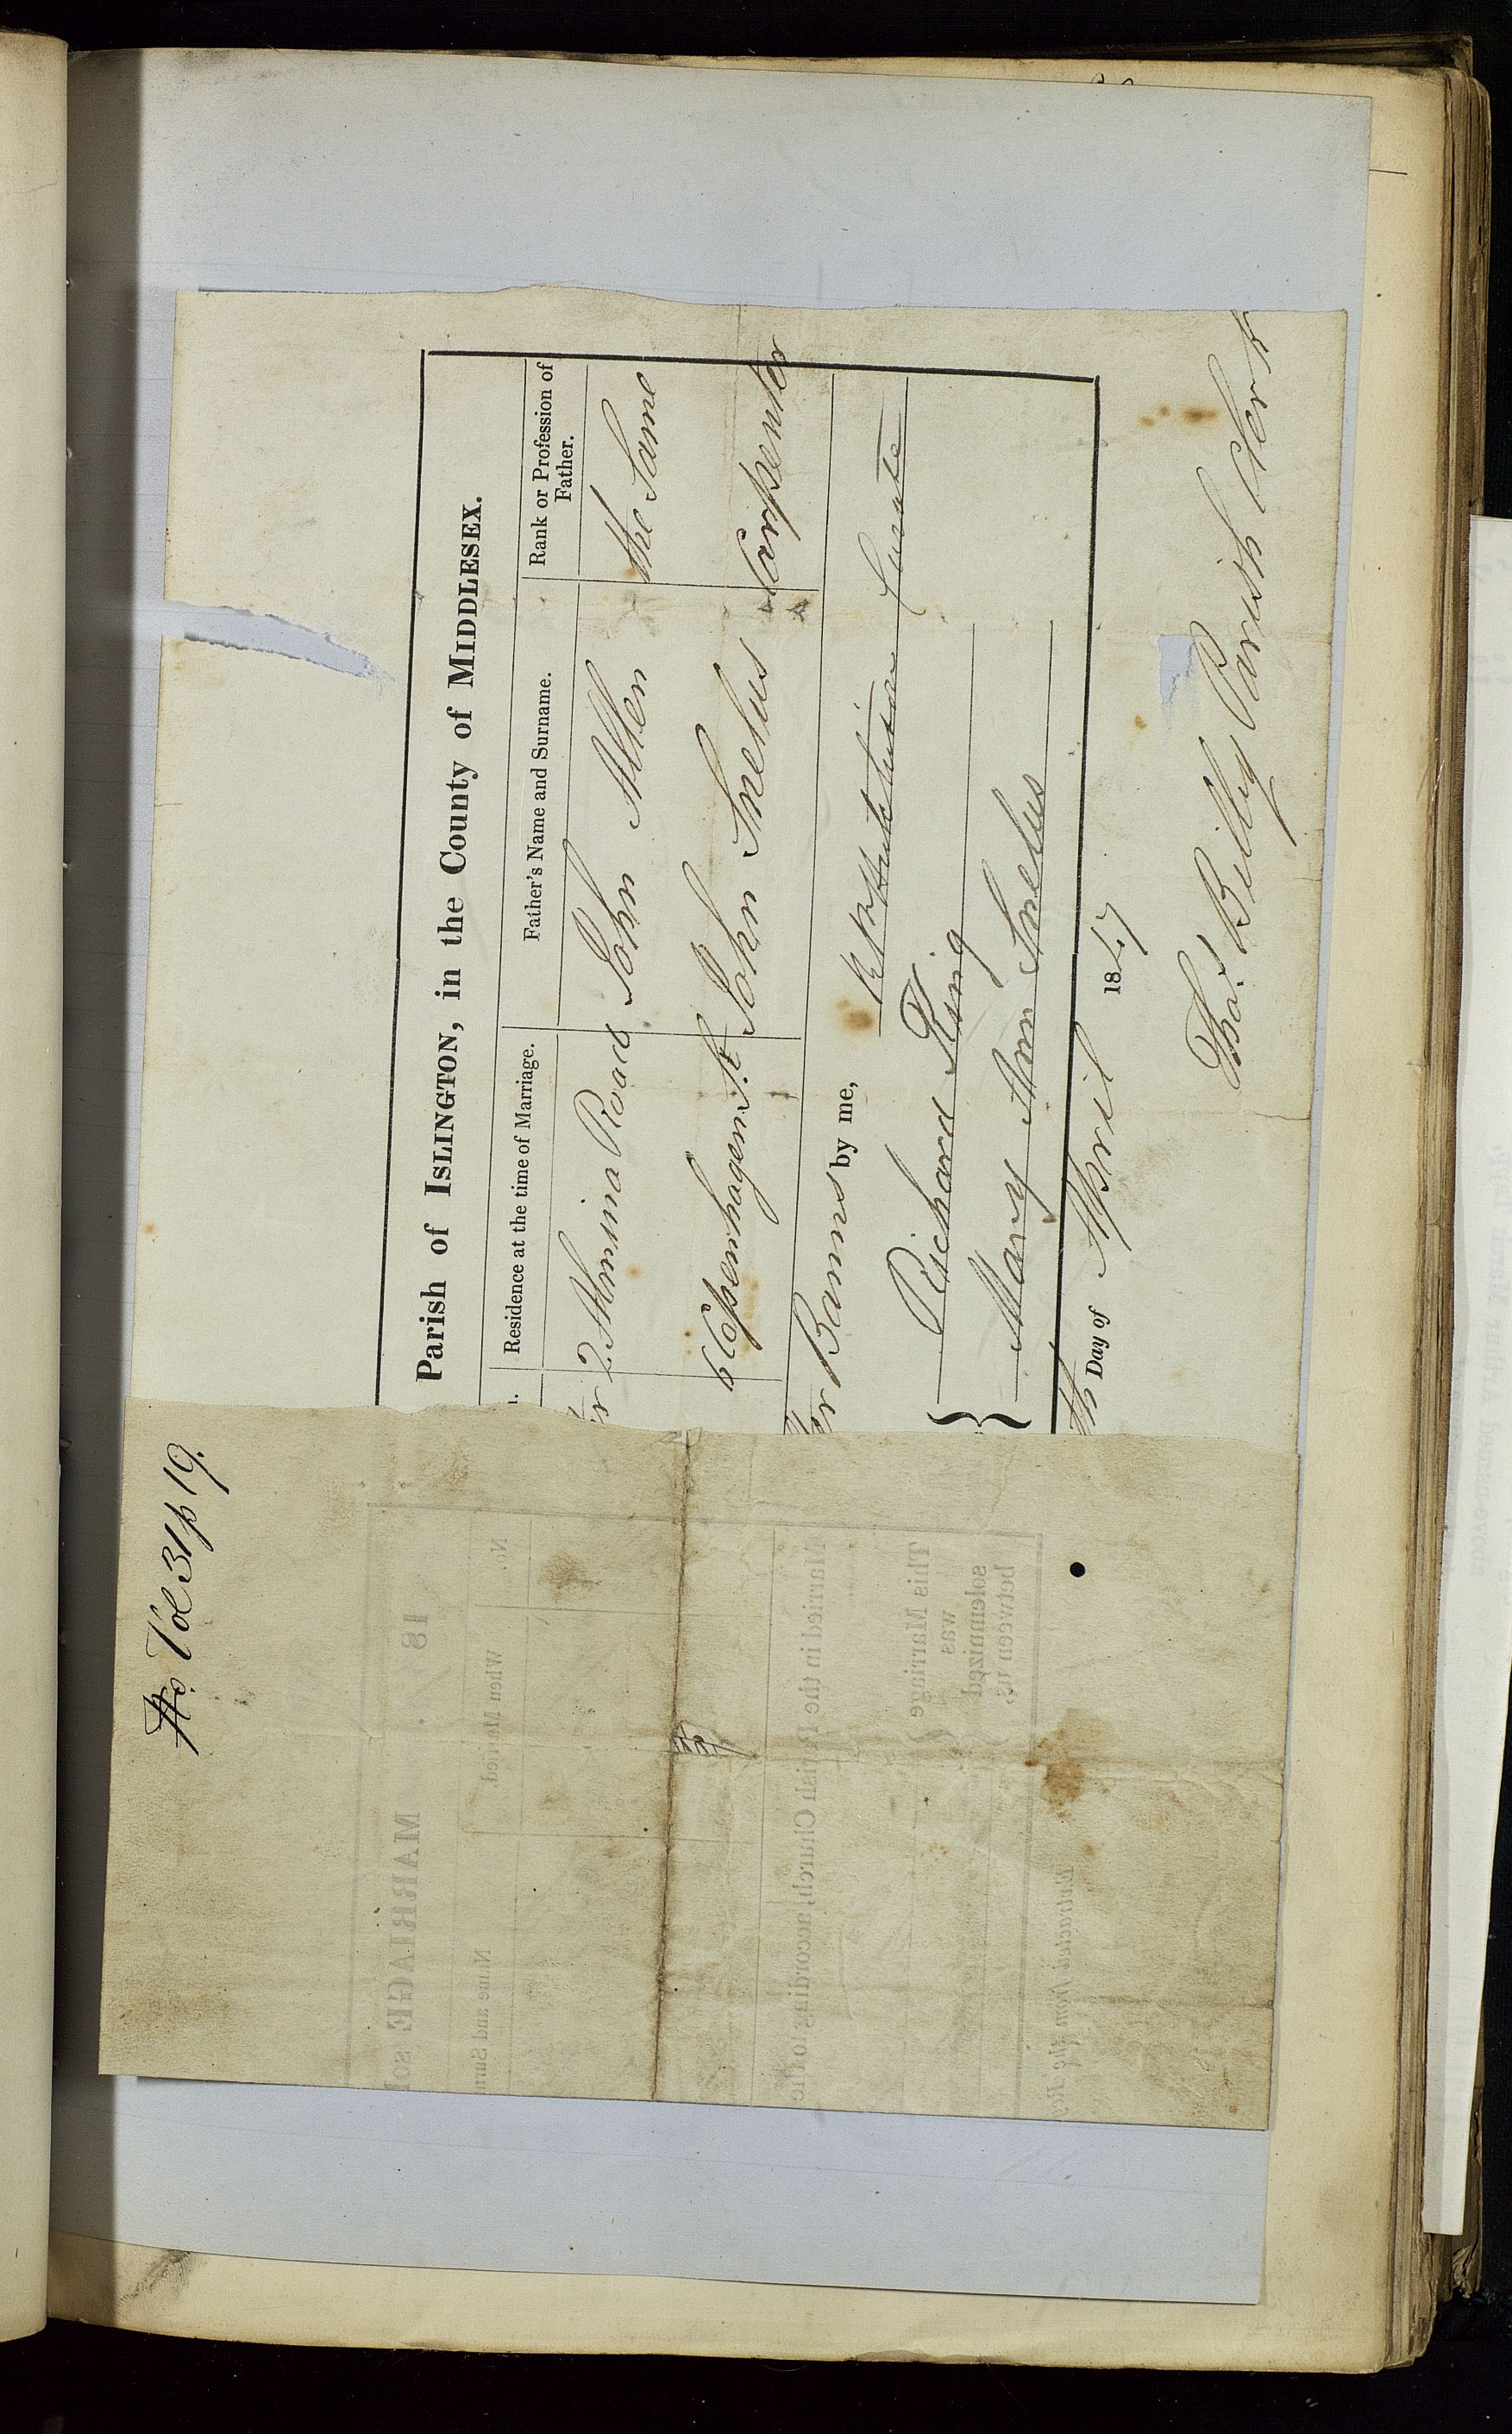 Parish of ISLINGTON, in the County of MIDDLESEX.
Residence at the time of Marriage. Father's Name and Surname. Rank or Profession of Father.
2 Almina Road John Allen the Same
6 Copenhagen St John Snelus Carpenter
Banns by me, Curate
Richard King
Mary Ann Snelus
th Day of April 1847
Thos Billby Parish Clerk
Vol 31 p 19.
18 MARRIAGE sol
No. When Married. Name and Surn
Married in the Parish Church, according to the
This Marriage
was
solemnized
between us,
Extracted from the Reg